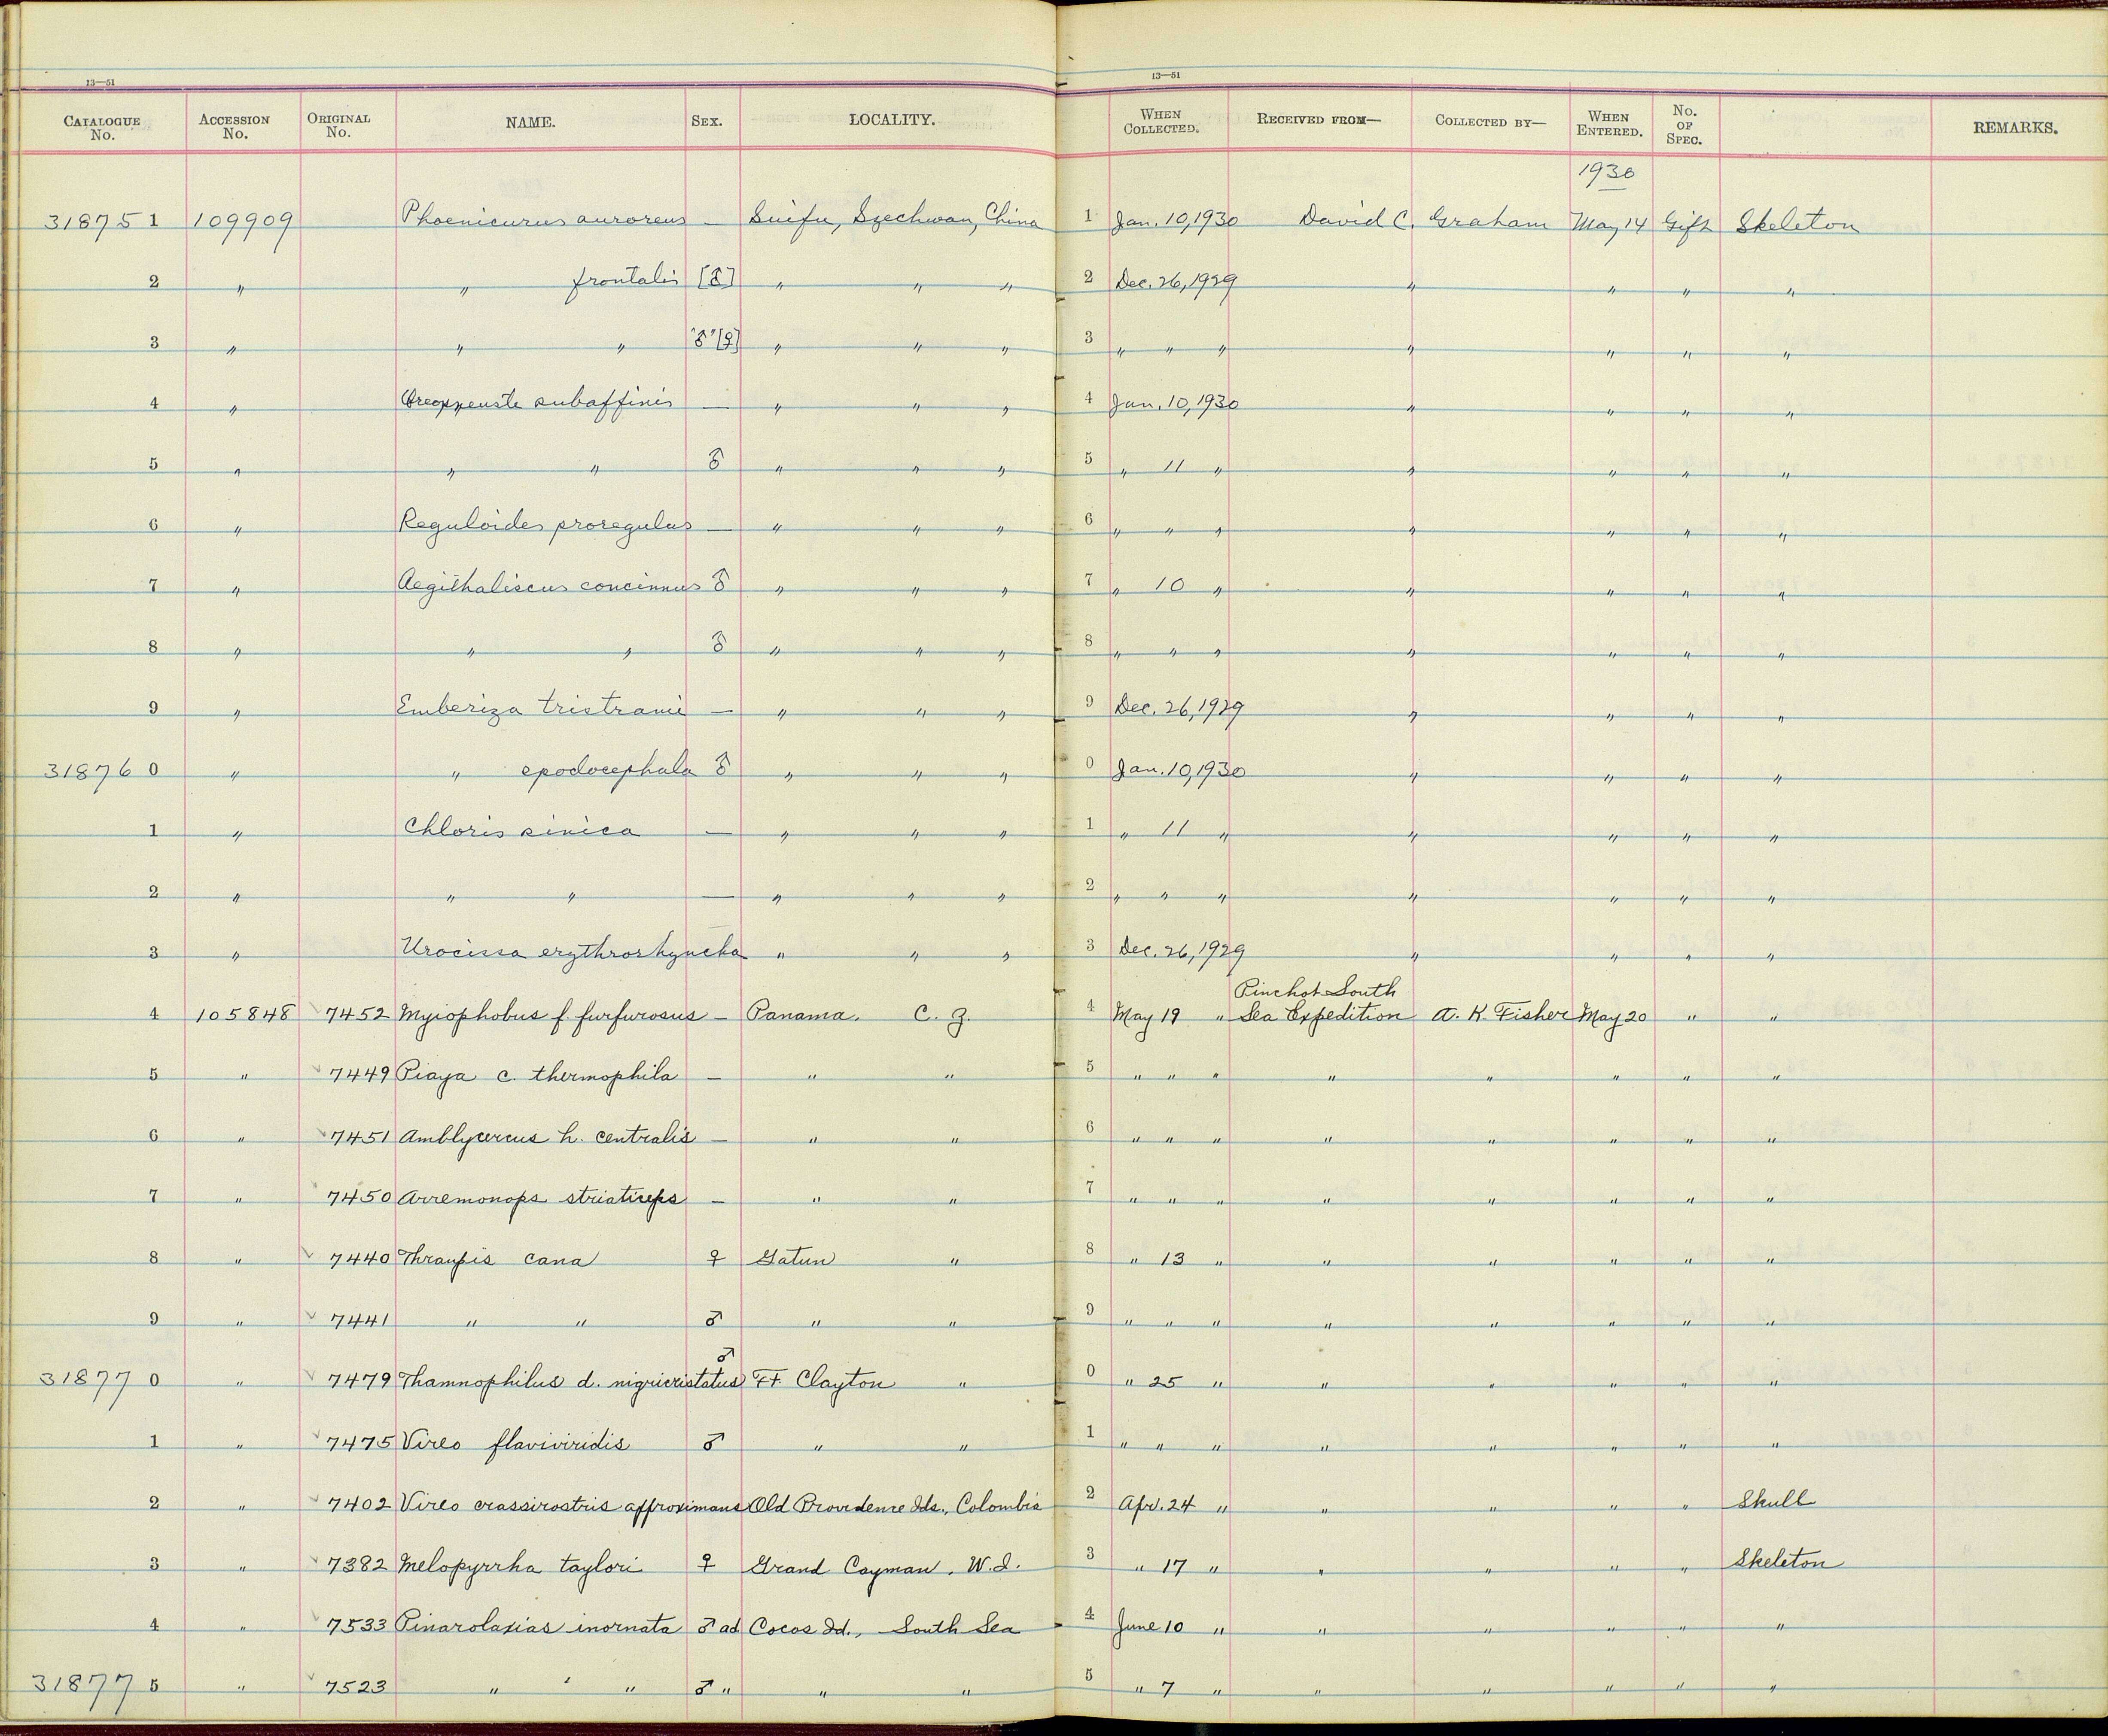 13—51 13—51
CATALOGUE No. ACCESSION No. ORIGINAL No. NAME. SEX. LOCALITY. WHEN COLLECTED. RECEIVED FROM— COLLECTED BY— WHEN ENTERED. No. OF SPEC. REMARKS.
1930
318751 109909 Phoenicurus auroreus — Suifu, Szechwan, China 1 Jan. 10, 1930 David C. Graham May 14 Gift Skeleton
2 " " frontalis [♂] " " " 2 Dec. 26, 1929 " " " "
3 " " " "♂" [♀] " " " 3 " " " " " " "
4 " subaffinis — " " " 4 Jan. 10, 1930 " " " "
5 " " " ♂ " " " 5 " 11 " " " " "
6 " Reguloides proregulus — " " " 6 " " " " " " "
7 " Aegithaliscus concinnus ♂ " " " 7 " 10 " " " " "
8 " " " ♂ " " " 8 " " " " " " "
9 " Emberiza tristrami — " " " 9 Dec. 26, 1929 " " " "
318760 " " spodocephala ♂ " " " 0 Jan. 10, 1930 " " " "
1 " Chloris sinica — " " " 1 " 11 " " " " "
2 " " " — " " " 2 " " " " " " "
3 " Urocissa erythrorhyncha " " " 3 Dec. 26, 1929 " " " "
4 105848 7452 Myiophobus f. furfurosus — Panama, C. Z. 4 May 19 " Pinchot South Sea Expedition A. K. Fisher May 20 " "
5 " 7449 Piaya c. thermophila — " " 5 " " " " " " " "
6 " 7451 Amblycercus h. centralis — " " 6 " " " " " " " "
7 " 7450 Arremonops striaticeps — " " 7 " " " " " " " "
8 " 7440 Thraupis cana ♀ Gatun " 8 " 13 " " " " " "
9 " 7441 " " ♂ " " 9 " " " " " " " "
318770 " 7479 Thamnophilus d. nigricristatus ♂ Ft. Clayton " 0 " 25 " " " " " "
1 " 7475 Vireo flaviviridis ♂ " " 1 " " " " " " " "
2 " 7402 Vireo crassirostris approximans Old Providence Ids., Colombia 2 Apr. 24 " " " " " Skull
3 " 7382 Melopyrrha taylori ♀ Grand Cayman, W. I. 3 " 17 " " " " " Skeleton
4 " 7533 Pinarolaxias inornata ♂ ad Cocos Id., South Sea 4 June 10 " " " " " "
318775 " 7523 " " ♂ " " " 5 " 7 " " " " " "